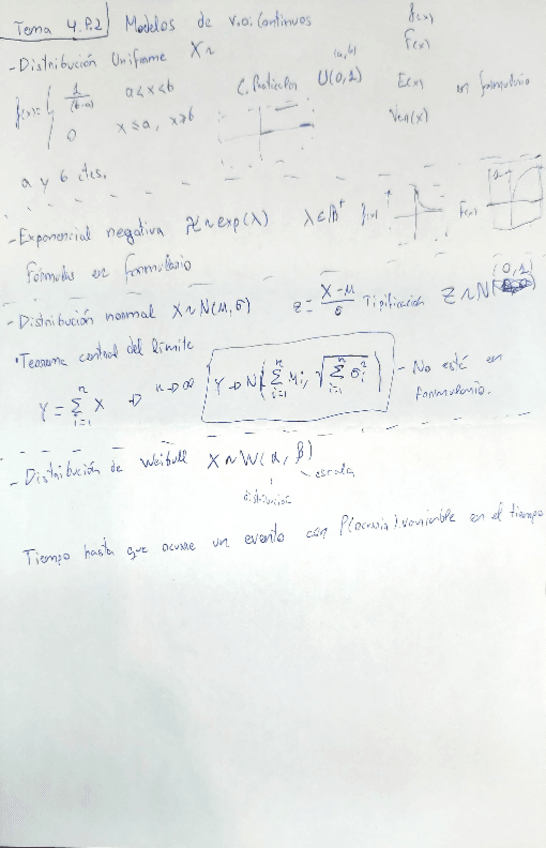 Tema 4.P.2 Modelos de v.a. Continuos
f(x)
F(x)
E(x) en formulario
Var(x)
- Distribución Uniforme X~
f(x)= 1/(b-a) a<x<b
0 x≤a, x≥b
C. Particular U(0,1)
(a,b)
a y b ctes.
- Exponencial negativa X~exp(λ) λ∈ℝ⁺ f(x) F(x)
Formulas en formulario
- Distribución normal X~N(μ,σ) z = (X-μ)/σ Tipificación Z~N(0,1)
• Teorema central del límite
Y = Σ_{i=1}^{n} X → n→∞ Y→N(Σ_{i=1}^{n} μi, √(Σ_{i=1}^{n} σi²)) - No está en
formulario.
- Distribución de Weibull X~W(α, β)
escala
Tiempo hasta que ocurre un evento con P(ocurrir) variable en el tiempo